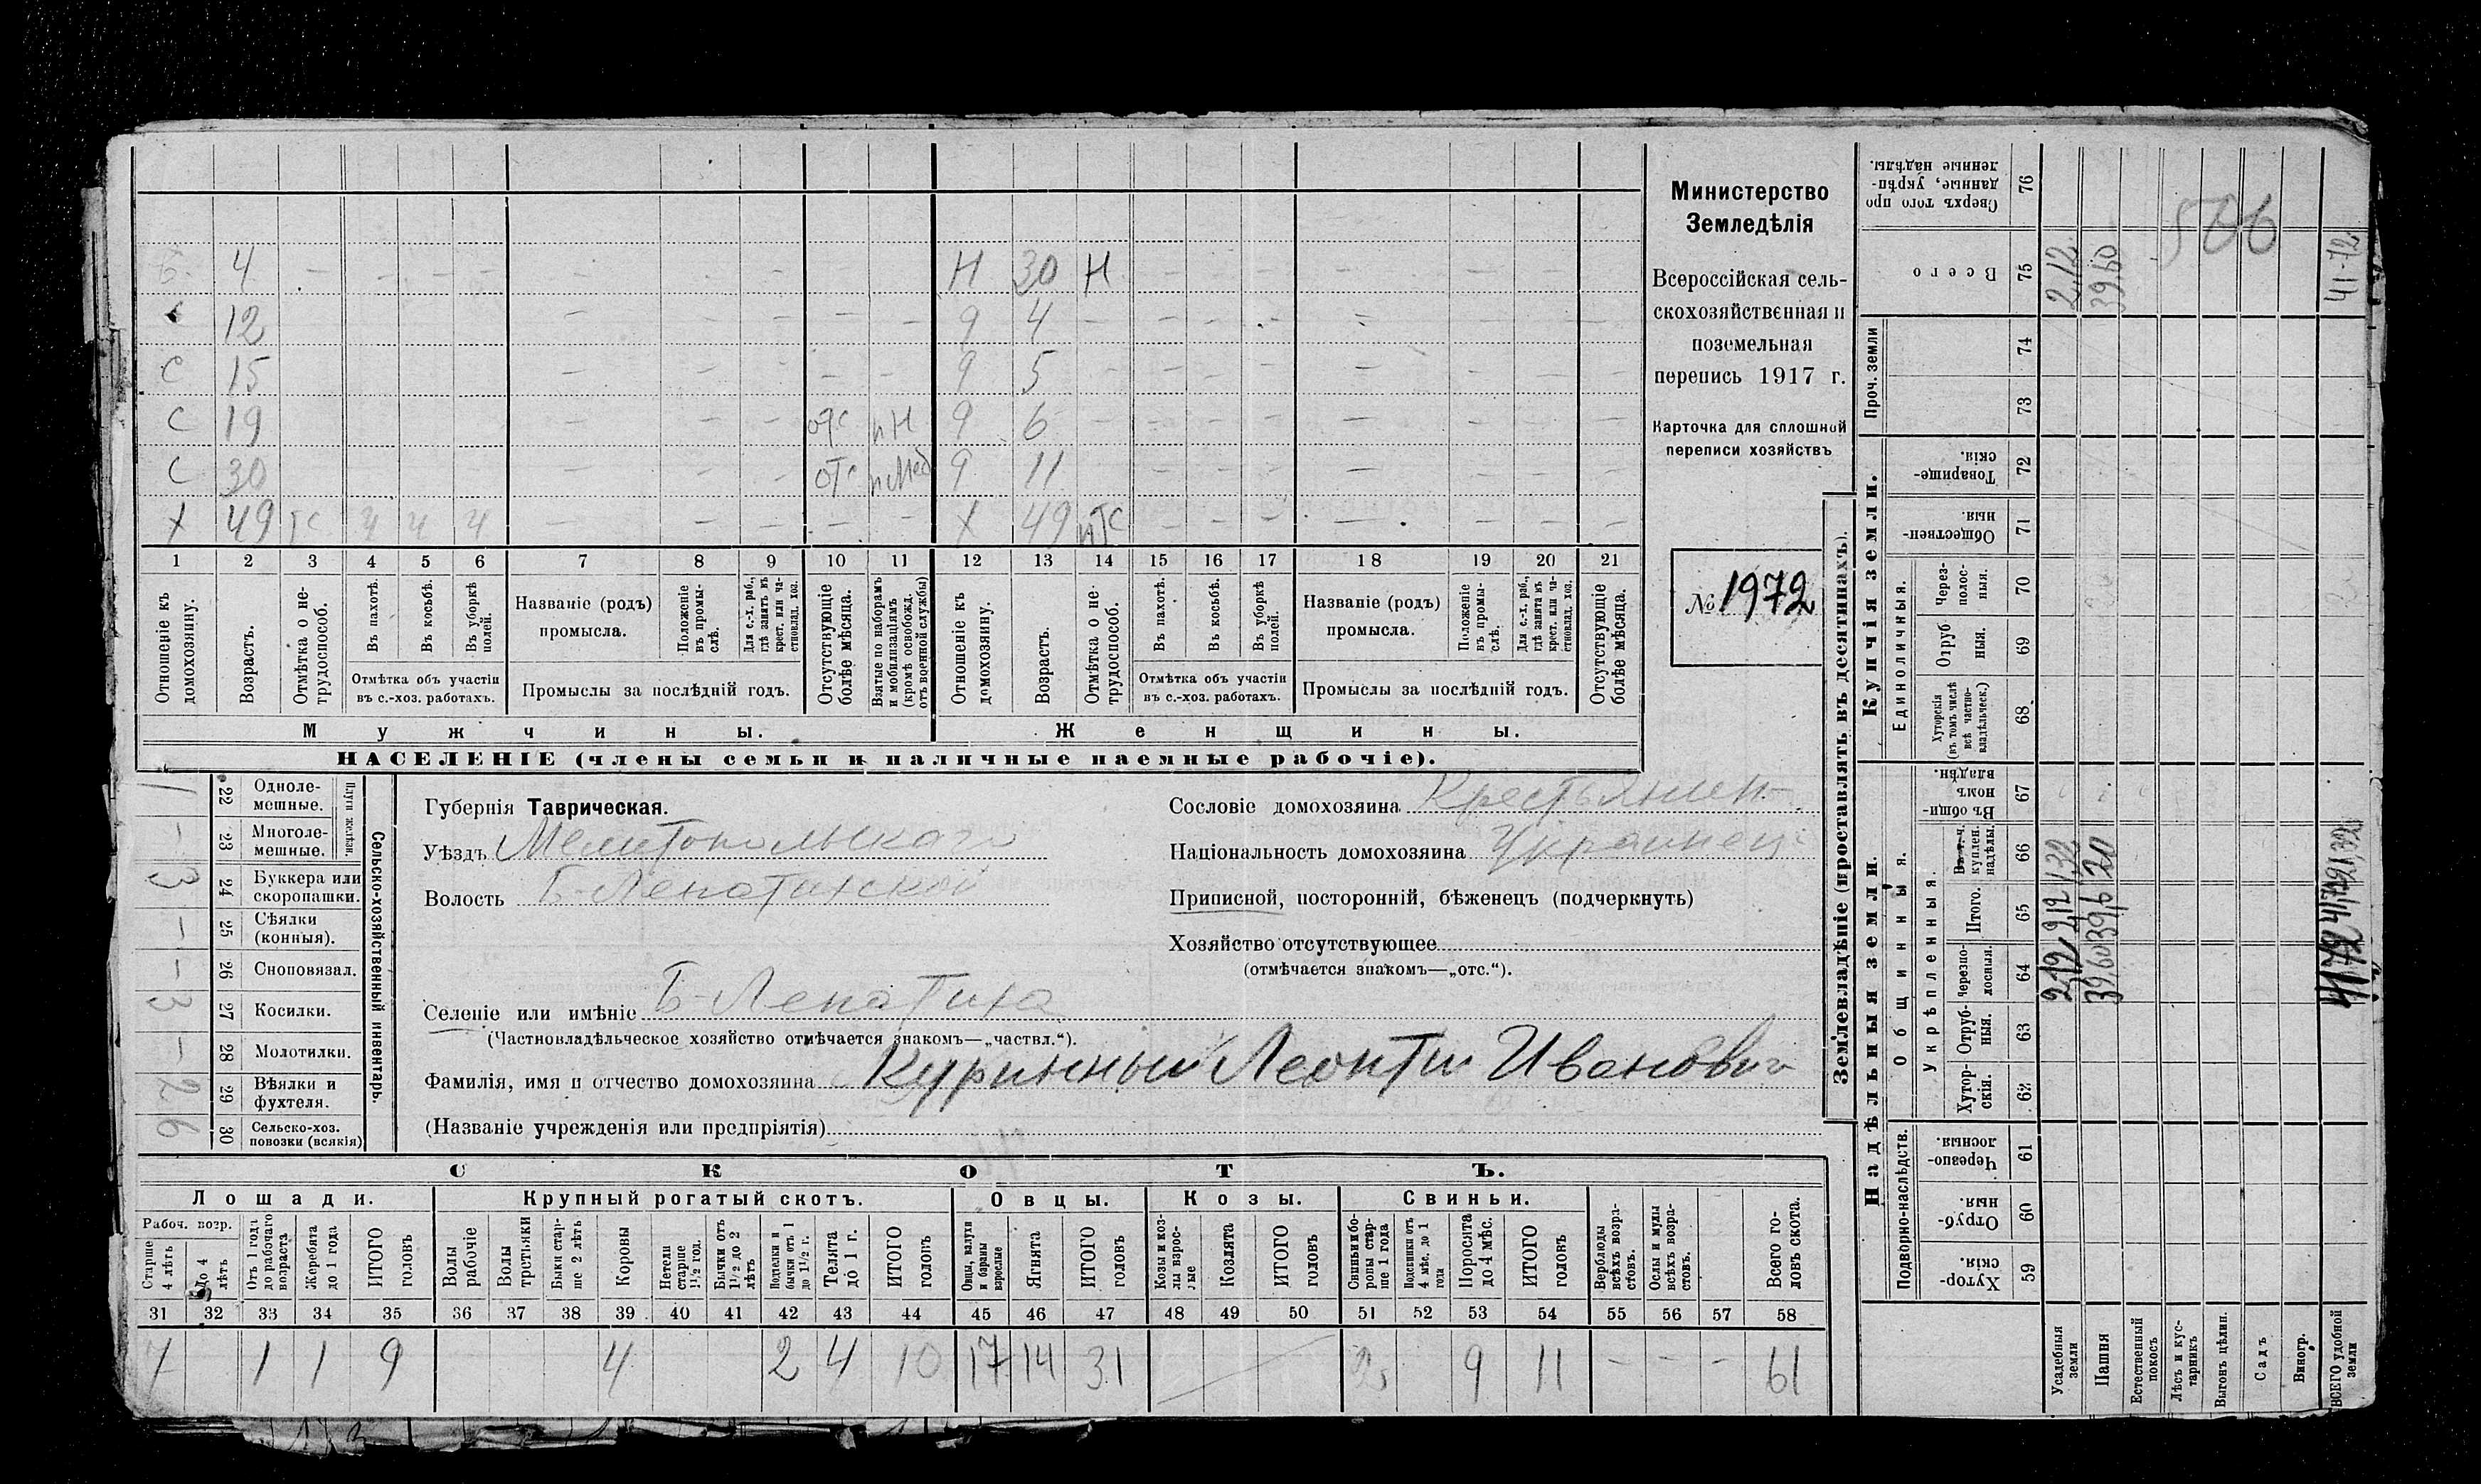 Б. 4 — — — — — — — — — Н 30 Н — — — — — — —
С 12 — — — — — 9 4 — — — — — — — —
С 15 — — — — — 9 5 — — — — — — — —
С 19 — — — отс 9 6 — — — — — — — —
С 30 — — — отс 9 11 — — — — — — — —
Х 49 ТС Ч Ч Ч — — — — — Х 49 — — — — — — —
1 2 3 4 5 6 7 8 9 10 11 12 13 14 15 16 17 18 19 20 21
Отношеніе къ домохозяину.
Возрастъ.
Отмѣтка о не-
трудоспособ.
Въ пахотѣ.
Въ косьбѣ.
Въ уборкѣ
полей.
Отмѣтка объ участіи
въ с.-хоз. работахъ.
Названіе (родъ)
промысла.
Положеніе
въ промы-
слѣ.
Для с.-х. раб.,
гдѣ занятъ въ
крест. или ча-
стновлад. хоз.
Промыслы за послѣдній годъ.
Отсутствующіе
болѣе мѣсяца.
Взятые по наборамъ
и мобилизаціямъ
(кромѣ освобожд.
отъ военной службы)
Отношеніе къ
домохозяину.
Возрастъ.
Отмѣтка о не-
трудоспособ.
Въ пахотѣ.
Въ косьбѣ.
Въ уборкѣ
полей.
Отмѣтка объ участіи
въ с.-хоз. работахъ.
Названіе (родъ)
промысла.
Положеніе
въ промы-
слѣ.
Для с.-х. раб.,
гдѣ занята въ
крест. или ча-
стновлад. хоз.
Промыслы за послѣдній годъ.
Отсутствующіе
болѣе мѣсяца.
Мужчины.
Женщины.
НАСЕЛЕНІЕ (члены семьи и наличные наемные рабочіе).
Министерство
Земледѣлія
Всероссійская сель-
скохозяйственная и
поземельная
перепись 1917 г.
Карточка для сплошной
переписи хозяйствъ
№ 1972
Плуги желѣзн.
Сельско-хозяйственный инвентарь.
1 22 Одноле-
мешные.
— 23 Многоле-
мешные.
3 24 Буккера или
скоропашки.
— 25 Сѣялки
(конныя).
— 26 Сноповязал.
3 27 Косилки.
— 28 Молотилки.
2 29 Вѣялки и
фухтеля.
6 30 Сельско-хоз.
повозки (всякія)
Губернія Таврическая.
Уѣздъ Мелитопольскаго
Волость Б-Лепатихской
Селеніе или имѣніе Б-Лепатиха
(Частновладѣльческое хозяйство отмѣчается знакомъ—„частвл.“).
Фамилія, имя и отчество домохозяина Куринный Леонтий Иванович
(Названіе учрежденія или предпріятія)
Сословіе домохозяина Крестьянин
Національность домохозяина Украинец
Приписной, посторонній, бѣженец (подчеркнуть)
Хозяйство отсутствующее
(отмѣчается знакомъ—„отс.“).
СКОТЪ.
Лошади. Крупный рогатый скотъ. Овцы. Козы. Свиньи.
Рабоч. возр.
Старше
4 лѣтъ
До 4
лѣтъ
Отъ 1 года
до рабочаго
возраста
Жеребята
до 1 года
ИТОГО
головъ
Волы
рабочіе
Волы
третьяки
Быки стар-
ше 2 лѣтъ
Коровы
Нетели
старше
1½ год.
Бычки отъ
1½ до 2
лѣтъ
Подтелки и
бычки отъ 1
до 1½ г.
Телята
до 1 г.
ИТОГО
головъ
Овцы, валухи
и бараны
взрослые
Ягнята
ИТОГО
головъ
Козы и коз-
лы взрос-
лые
Козлята
ИТОГО
головъ
Свиньи и бо-
ровы стар-
ше 1 года
Подсвинки отъ
4 мѣс. до 1
года
Поросята
до 4 мѣс.
ИТОГО
головъ
Верблюды
всѣхъ возра-
стовъ.
Ослы и мулы
всѣхъ возра-
стовъ.
Всего го-
ловъ скота.
31 32 33 34 35 36 37 38 39 40 41 42 43 44 45 46 47 48 49 50 51 52 53 54 55 56 57 58
7 1 1 9 4 2 4 10 17 14 31 9 11 — — — 61
Землевладѣніе (проставлять въ десятинахъ).
Надѣльныя земли. Купчія земли. Проч. земли
Подворно-наслѣдств. Общинныя. Единоличныя.
Укрѣпленныя.
Хутор-
скія.
59
Отруб-
ныя.
60
Черезпо-
лосныя.
61
Хутор-
скія.
62
Отруб-
ныя.
63
Черезпо-
лосныя.
64
Итого.
65
Въ т. ч.
куплен.
надѣлы.
66
Въ общи-
номъ
владѣн.
67
Хуторскія
(въ томъ числѣ
всѣ частно-
владѣльческ.)
68.
Отруб
ныя.
69
Через-
полос-
ныя.
70
Обществен-
ныя.
71
Товарище-
скія.
72
73
74
Всего
75
Сверхъ того про
данные, укрѣп-
ленные надѣлы.
76
Усадебныя
земли
2,12 2,12 1,32 2,12
Пашня
39,60 39,6 20 39,60
Естественный
покосъ
Лѣсъ и кус-
тарникъ
Выгонъ цѣлин.
Садъ
Виногр.
ВСЕГО удобной
земли
41,72 41,72 21,32 41-72